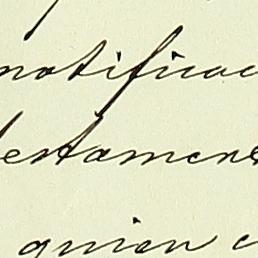 notificac
testamen
quien c